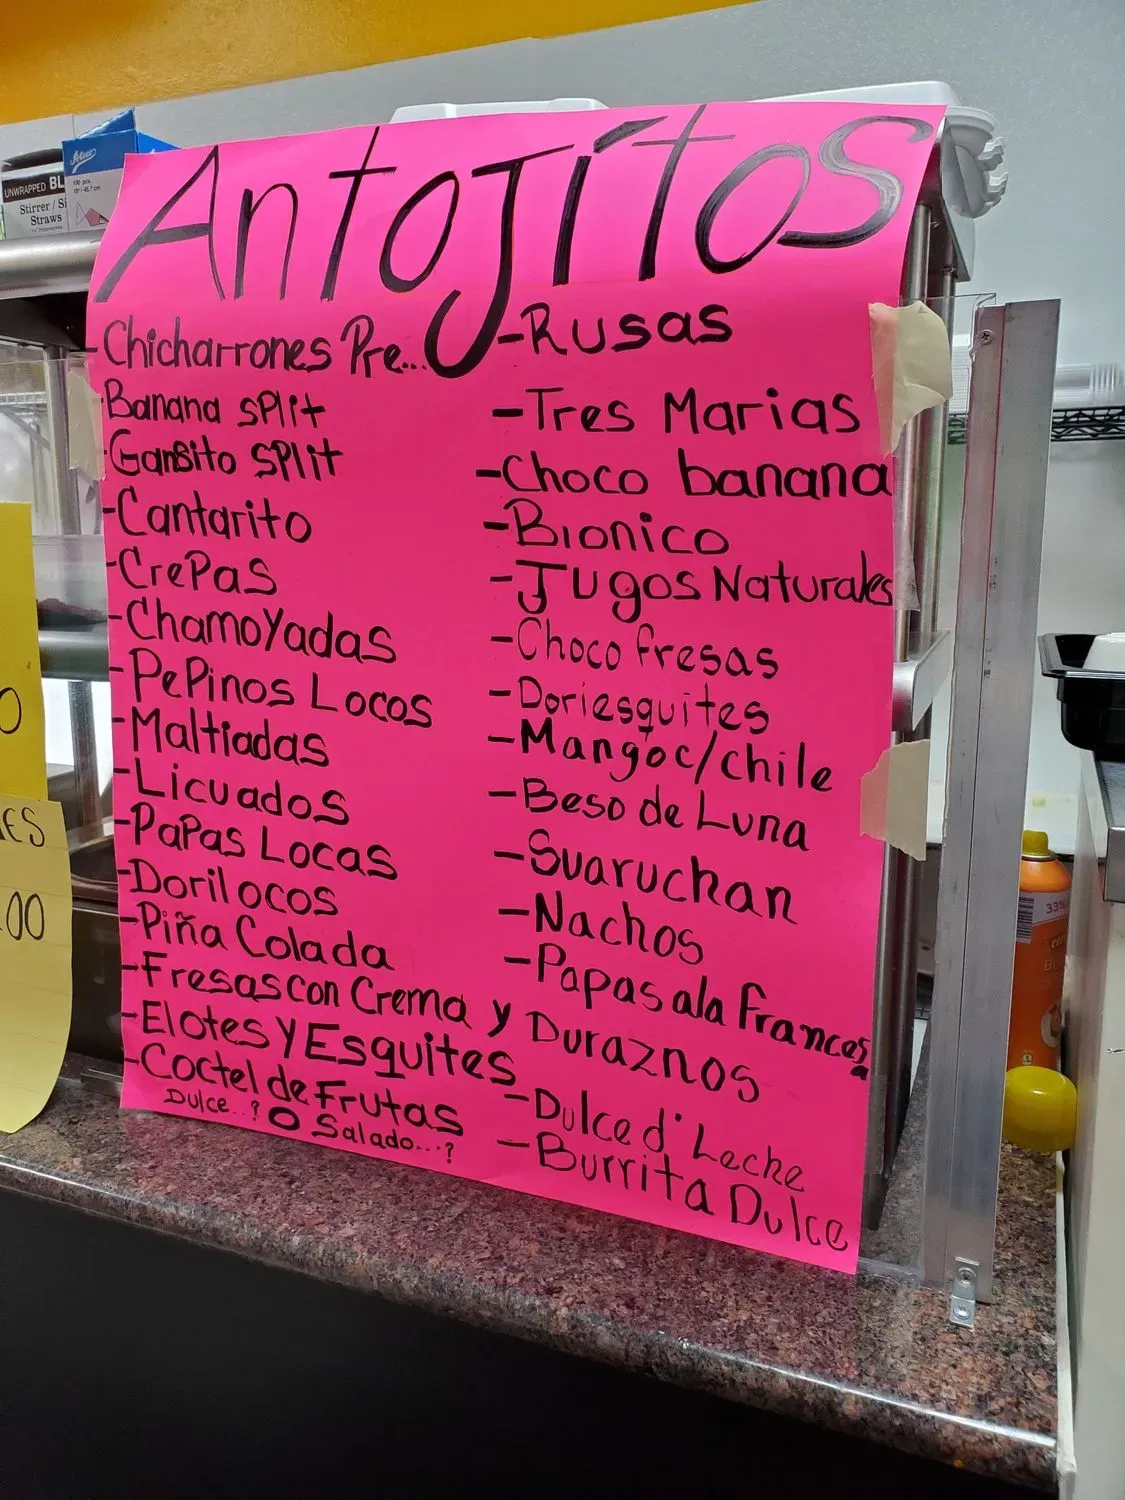 Antojitos
-Chicharrones Pre...
Banana split
-Gansito split
-Cantarito
-Crepas
-Chamoyadas
-Pepinos Locos
-Maltiadas
-Licuados
-Papas Locas
-Dorilocos
-Piña Colada
-Fresas con Crema y Duraznos
-Elotes y Esquites
-Coctel de Frutas
Dulce..? O Salado...?
-Rusas
-Tres Marias
-Choco banana
-Bionico
-Jugos Naturales
-Choco fresas
-Doriesquites
-Mango c/chile
-Beso de Luna
-Suaruchan
-Nachos
-Papas a la francesa
-Dulce d' Leche
-Burrita Dulce
UNWRAPPED BL
Stirrer / Si
Straws
100 pcs.
ES
.00
0
33%